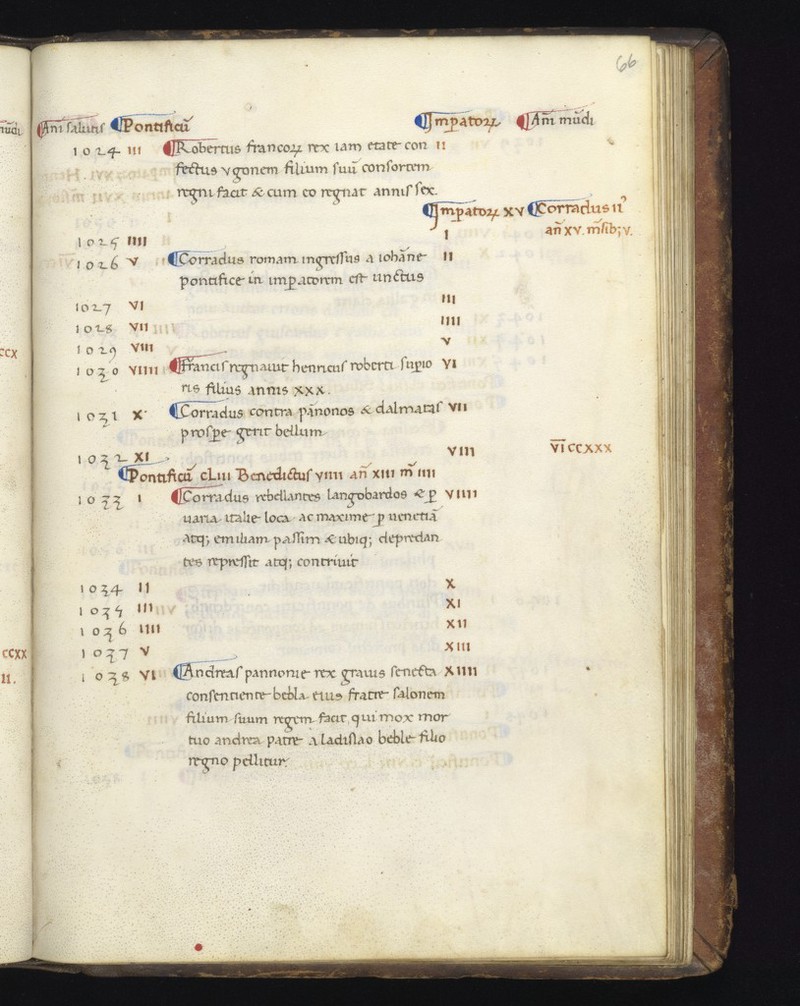 66
nudi
Añi salutis Pontificũ Impatoꝝ Añi mũdi
1024 III Robertus francoꝝ rex iam etate con II
fectus vgonem filium suũ consortem
regni facit & cum eo regnat annis sex.
Impatoꝝ XV Corradus II
1025 IIII I añ XV. msib; V.
1026 V Corradus romam ingressus a iohãne II
pontifice in impatorem est unctus
1027 VI III
1028 VII IIII
1029 VIII V
CCX
1030 VIIII Francis regnauit henricus roberti supio VI
ris filius annis XXX.
1031 X Corradus contra pãnonos & dalmatas VII
prospe gerit bellum
1032 XI VIII VI CCXXX
Pontificũ CLIII Benedictus VIIII añ XIII m̃ IIII
1033 I Corradus rebellantes langobardos & p VIIII
uaria italie loca ac maxime p uenetiã
atq; emiliam passim & ubiq; depredan
tes repressit atq; contriuit
1034 II X
1035 III XI
1036 IIII XII
CCXX
1037 V XIII
II.
1038 VI Andreas pannonie rex grauis senecta XIIII
consentiente bebla eius fratre salonem
filium suum regem facit qui mox mor
tuo andrea patre a ladislao beble filio
regno pellitur